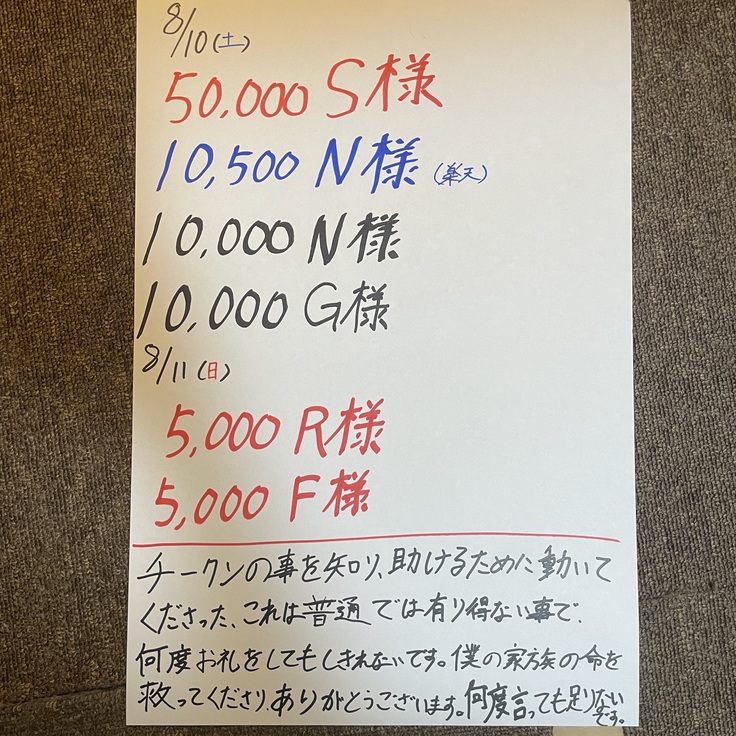 8/10(土)
50,000 S様
10,500 N様 (楽天)
10,000 N様
10,000 G様
8/11(日)
5,000 R様
5,000 F様
チークンの事を知り、助けるために動いて
くださった、これは普通では有り得ない事で、
何度お礼をしてもしきれないです。僕の家族の命を
救ってくださり、ありがとうございます。何度言っても足りない
です。